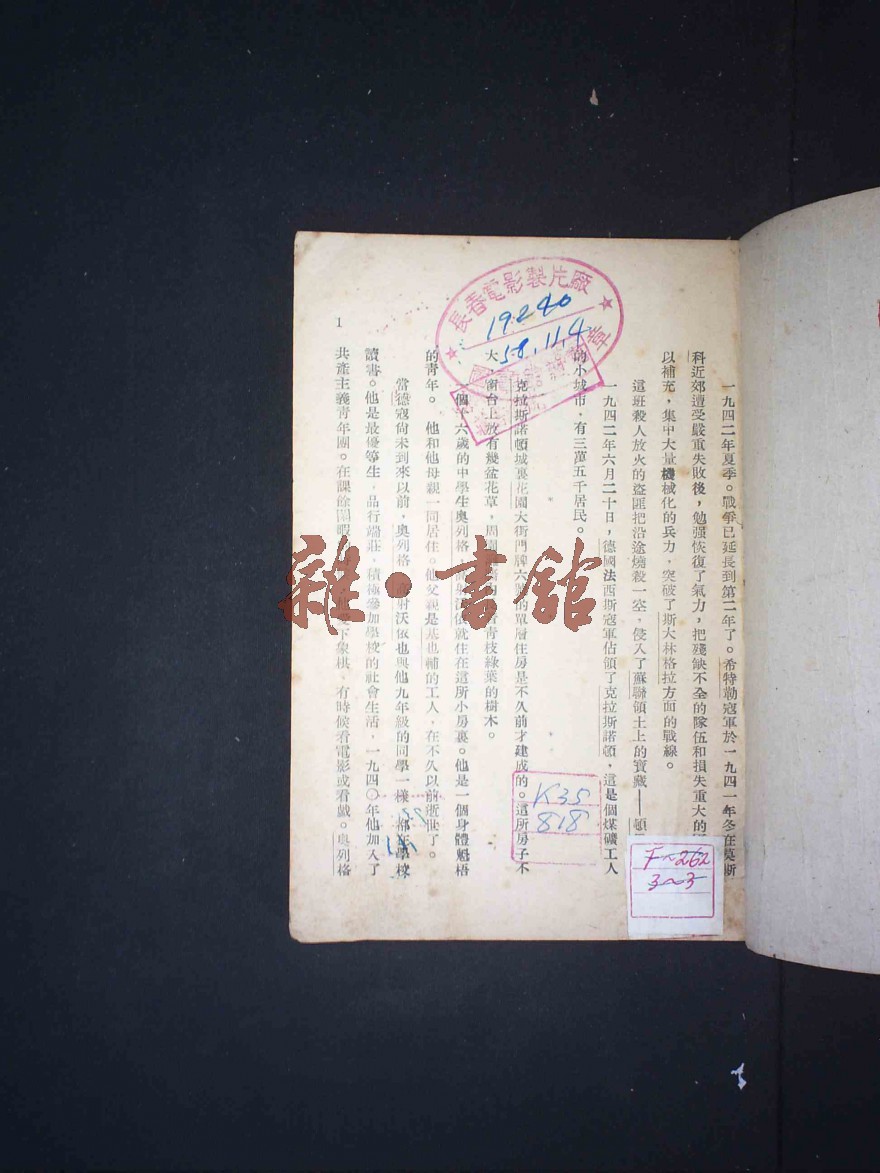 一九四二年夏季。戰爭已延長到第二年了。希特勒寇軍於一九四一年冬在莫斯
科近郊遭受嚴重失敗後，勉强恢復了氣力，把殘缺不全的隊伍和損失重大的
以補充，集中大量機械化的兵力，突破了斯大林格拉方面的戰線。
這班殺人放火的盜匪把沿途燒殺一空，侵入了蘇聯領土上的寶藏——頓
一九四二年六月二十日，德國法西斯寇軍佔領了克拉斯諾頓，這是個煤礦工人
的小城市，有三萬五千居民。
克拉斯諾頓城裏花園大街門牌六號的單層住房是不久前才建成的。這所房子不
大，窗台上放有幾盆花草，周圍青枝綠葉的樹木。
一個十六歲的中學生奧列格就住在這所小房裏。他是一個身體魁梧
的青年。他和他母親一同居住。他父親是基也輔的工人，在不久以前逝世了。
當德寇尙未到來以前，奧列格射沃依也與他九年級的同學一樣，都在學校
讀書。他是最優等生，品行端莊，積極參加學校的社會生活，一九四〇年他加入了
共產主義青年團。在課餘閒暇下象棋，有時候看電影或看戲。奧列格
1
長春電影製片廠
19240
58.11.4
章
K35
818
F~262
3~3
雜·書館